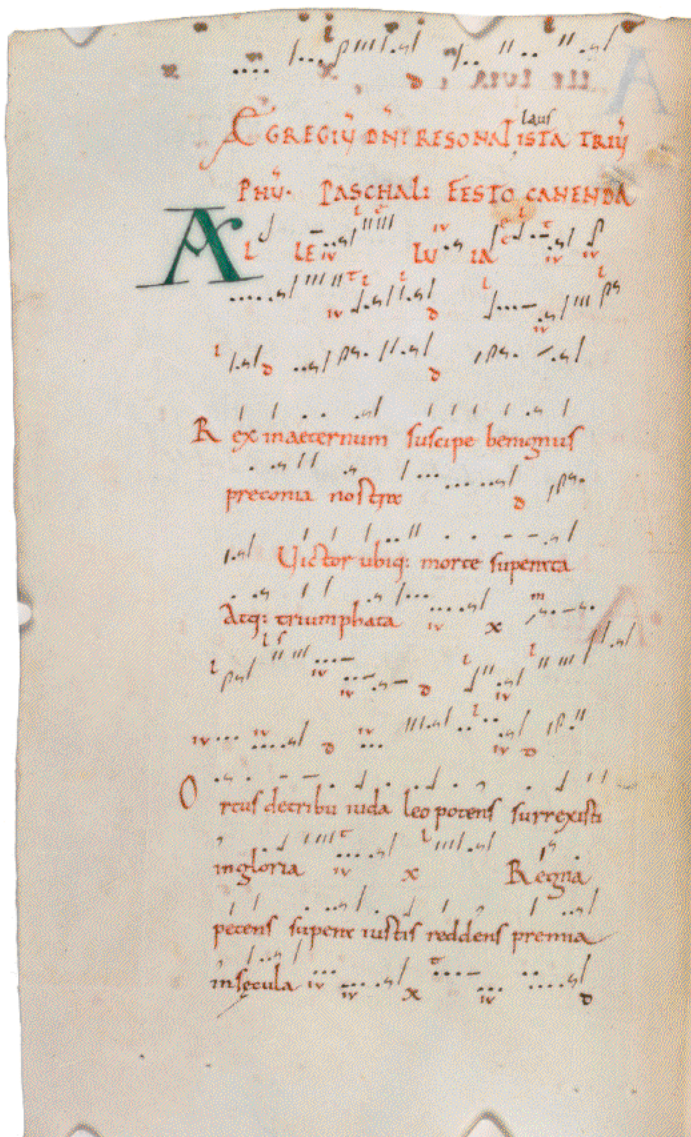 laus
EGREGIŪ DN̄I RESONAT ISTA TRIŪ
PHŪ. PASCHALI FESTO CANENDA
AL LE LU IA
Rex inaeternum suscipe benignus
preconia nostra
Uictor ubiq: morte superata
Atq: triumphata
Ortus detribu iuda leo potens surrexisti
ingloria Regna
petens supera iustis reddens premia
insęcula